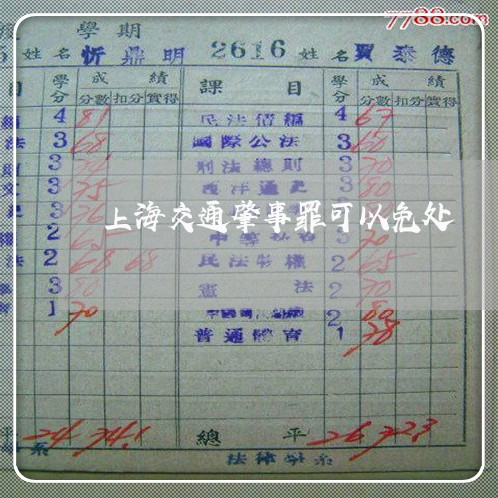 7788.com
學期
姓名 忻鼎明 2616 姓名 賈泰德
目 學分 成績 課目 學分 成績
分數 扣分 實得 分數 扣分 實得
4 81 民法債編 4 67
法 3 68 國際公法 3 60
3 刑法總則 3 70
3 75 西洋通史 3 80
3 76 3
上海交通肇事罪可以免处
2 65 70
法 2 68 68 民法物權 2 65
3 80 憲法 2 70
1 70 2 80
普通體育 1 78
平 24 74.1 總平 26 72.3
系 法律學系